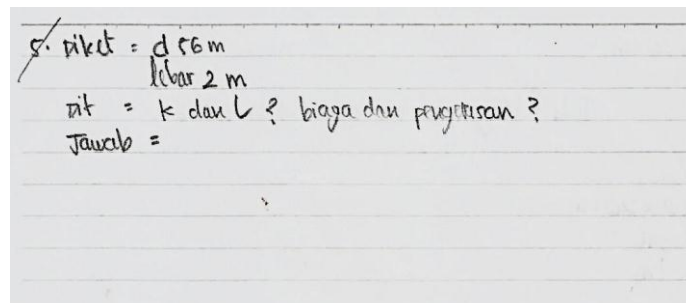 5. Diket = d 56 m
lebar 2 m
Dit = k dan L ? biaya dan pengerusan ?
Jawab =